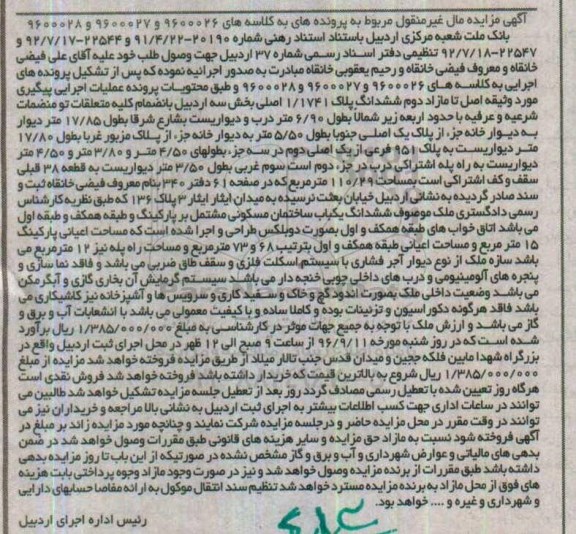 آگهی مزایده مال غیرمنقول مربوط به پرونده های به کلاسه های ۹۶۰۰۰۲۶ و ۹۶۰۰۰۲۷ و ۹۶۰۰۰۲۸
بانک ملت شعبه مرکزی اردبیل باستناد اسناد رهنی شماره ۲۰۱۹۰-۹۱/۴/۲۲ و ۲۲۵۴۴-۹۲/۷/۱۷ و
۲۲۵۴۷-۹۲/۷/۱۸ تنظیمی دفتر اسناد رسمی شماره ۳۷ اردبیل جهت وصول طلب خود علیه آقای علی فیضی
خانقاه و معروف فیضی خانقاه و رحیم یعقوبی خانقاه مبادرت به صدور اجرائیه نموده که پس از تشکیل پرونده های
اجرایی به کلاسه های ۹۶۰۰۰۲۶ و ۹۶۰۰۰۲۷ و ۹۶۰۰۰۲۸ و طبق محتویات پرونده عملیات اجرایی پیگیری
مورد وثیقه اصل تا مازاد دوم ششدانگ پلاک ۱/۱۷۴۱ اصلی بخش سه اردبیل بانضمام کلیه متعلقات تو منضمات
شرعیه و عرفیه با حدود اربعه زیر شمالاً بطول ۶/۹۰ متر درب و دیواریست بشارع شرقا بطول ۱۷/۸۵ متر دیوار
به دیوار خانه جز، از پلاک یک اصلی جنوبا بطول ۵/۵۰ متر به دیوار خانه جز، از پلاک مزبور غربا بطول ۱۷/۸۰
متر دیواریست به پلاک ۹۵۱ فرعی از یک اصلی دوم در سه جز، بطولهای ۴/۵۰ متر و ۳/۸۰ متر و ۴/۵۰ متر
دیواریست به راه پله اشتراکی که در جز، دوم است سوم غربی بطول ۳/۵۰ متر دیواریست به قطعه ۳۸ قبلی
سقف و کف اشتراکی است بمساحت ۱۱۰/۲۹ مترمربع که در صفحه ۶۱ دفتر ۳۴۰ بنام معروف فیضی خانقاه ثبت و
سند صادر گردیده به نشانی اردبیل خیابان بعثت نرسیده به میدان ایثار ایثار ۳ پلاک ۱۳۶ که طبق نظریه کارشناس
رسمی دادگستری ملک موصوف ششدانگ یکباب ساختمان مسکونی مشتمل بر پارکینگ و طبقه همکف و طبقه اول
می باشد اتاق خواب های طبقه همکف و اول بصورت دوبلکس طراحی و اجرا شده است که مساحت اعیانی پارکینگ
۱۵ متر مربع و مساحت اعیانی طبقه همکف و اول بترتیب ۶۸ و ۷۳ مترمربع و مساحت راه پله نیز ۱۲ مترمربع می
باشد سازه ملک از نوع دیوار آجر فشاری با سیستم اسکلت فلزی و سقف طاق ضربی می باشد و فاقد نماسازی و
پنجره های آلومینیومی و درب های داخلی چوبی خنجه دار می باشد سیستم گرمایش آن بخاری گازی و آبگرمکن
می باشد وضعیت داخلی ملک بصورت اندود گچ و خاک و سفید کاری و سرویس ها و آشپزخانه نیز کاشیکاری می
باشد فاقد هرگونه دکوراسیون و تزئینات بوده و کاملا ساده و با کیفیت معمولی می باشد با انشعابات آب و برق و
گاز می باشد و ارزش ملک با توجه به جمیع جهات موثر در کارشناسی به مبلغ ۱/۳۸۵/۰۰۰/۰۰۰ ریال برآورد
شده است که در روز شنبه مورخه ۹۶/۹/۱۱ از ساعت ۹ صبح الی ۱۲ ظهر در محل اجرای ثبت اردبیل واقع در
بزرگراه شهدا مابین فلکه ججین و میدان قدس جنب تالار میلاد از طریق مزایده فروخته خواهد شد مزایده از مبلغ
۱/۳۸۵/۰۰۰/۰۰۰ ریال شروع به بالاترین قیمت که خریدار داشته باشد فروخته خواهد شد فروش نقدی است
هرگاه روز تعیین شده با تعطیل رسمی مصادف گردد روز بعد از تعطیل جلسه مزایده تشکیل خواهد شد طالبین می
توانند در ساعات اداری جهت کسب اطلاعات بیشتر به اجرای ثبت اردبیل به نشانی بالا مراجعه و خریداران نیز می
توانند در وقت مقرر در محل مزایده حاضر و درجلسه مزایده شرکت نمایند و چنانچه مورد مزایده زائد بر مبلغ در
آگهی فروخته شود نسبت به مازاد حق مزایده و سایر هزینه های قانونی طبق مقررات وصول خواهد شد در ضمن
بدهی های مالیاتی و عوارض شهرداری و آب و برق و گاز مشخص نشده در صورتیکه از این باب تا روز مزایده بدهی
داشته باشد طبق مقررات از برنده مزایده وصول خواهد شد و نیز در صورت وجود مازاد وجوه پرداختی بابت هزینه
های فوق از محل مازاد به برنده مزایده مسترد خواهد شد تنظیم سند انتقال موکول به ارائه مفاصا حسابهای دارایی
و شهرداری و غیره و .... خواهد بود.
رئیس اداره اجرای اردبیل